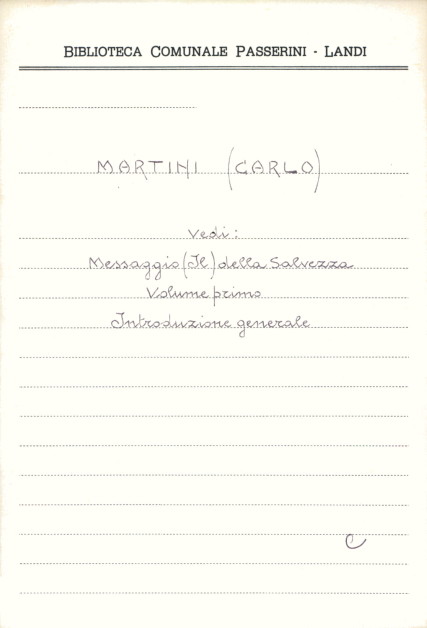 BIBLIOTECA COMUNALE PASSERINI - LANDI
MARTINI (CARLO)
Vedi:
Messaggio (Il) della Salvezza
Volume primo
Introduzione generale
C